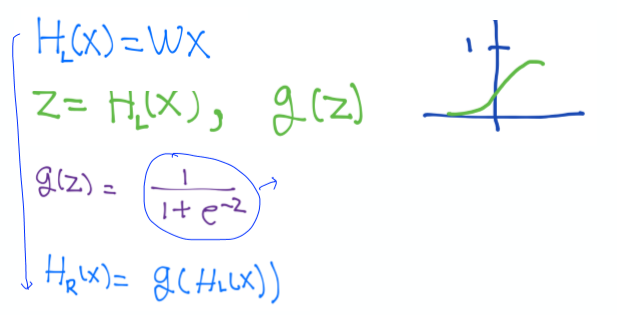 H_L(X) = WX
1
Z = H_L(X), g(Z)
g(Z) = 1 / (1 + e^-z)
H_R(X) = g(H_L(X))